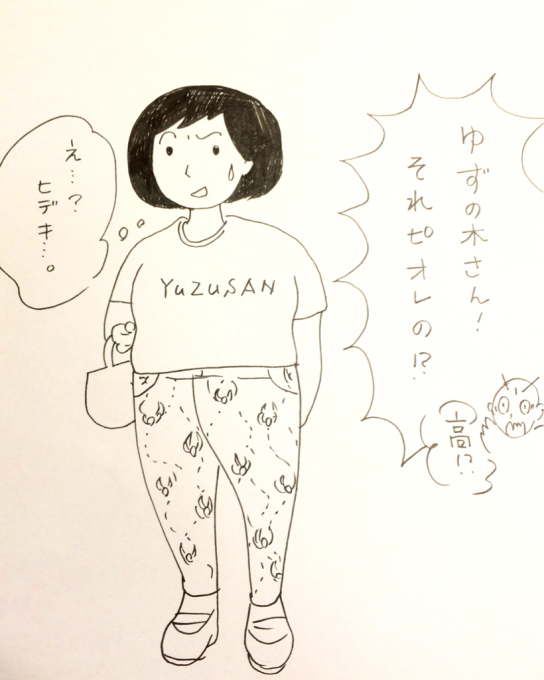 ゆずの木さん!
それピオレの!?
高!?
え…?
ヒデキ…。
YUZUSAN